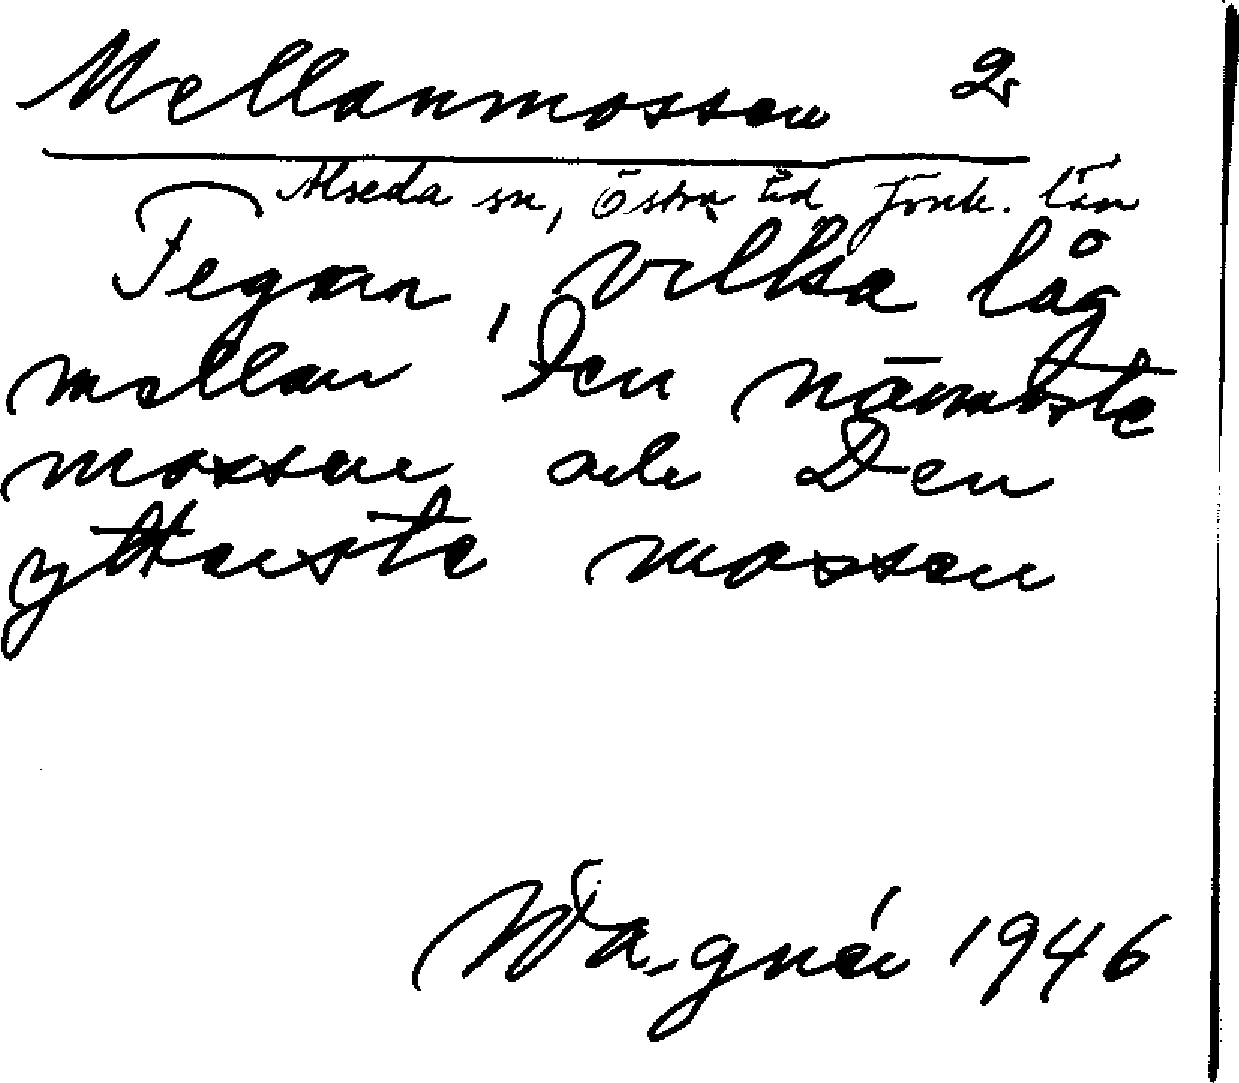 Mellanmossen 2
Alseda sn, Östra hd Jönk. län
Tegan, vilka låg
mellan Den närmbste
mossen och Den
ytterste mossen
Wagnér 1946